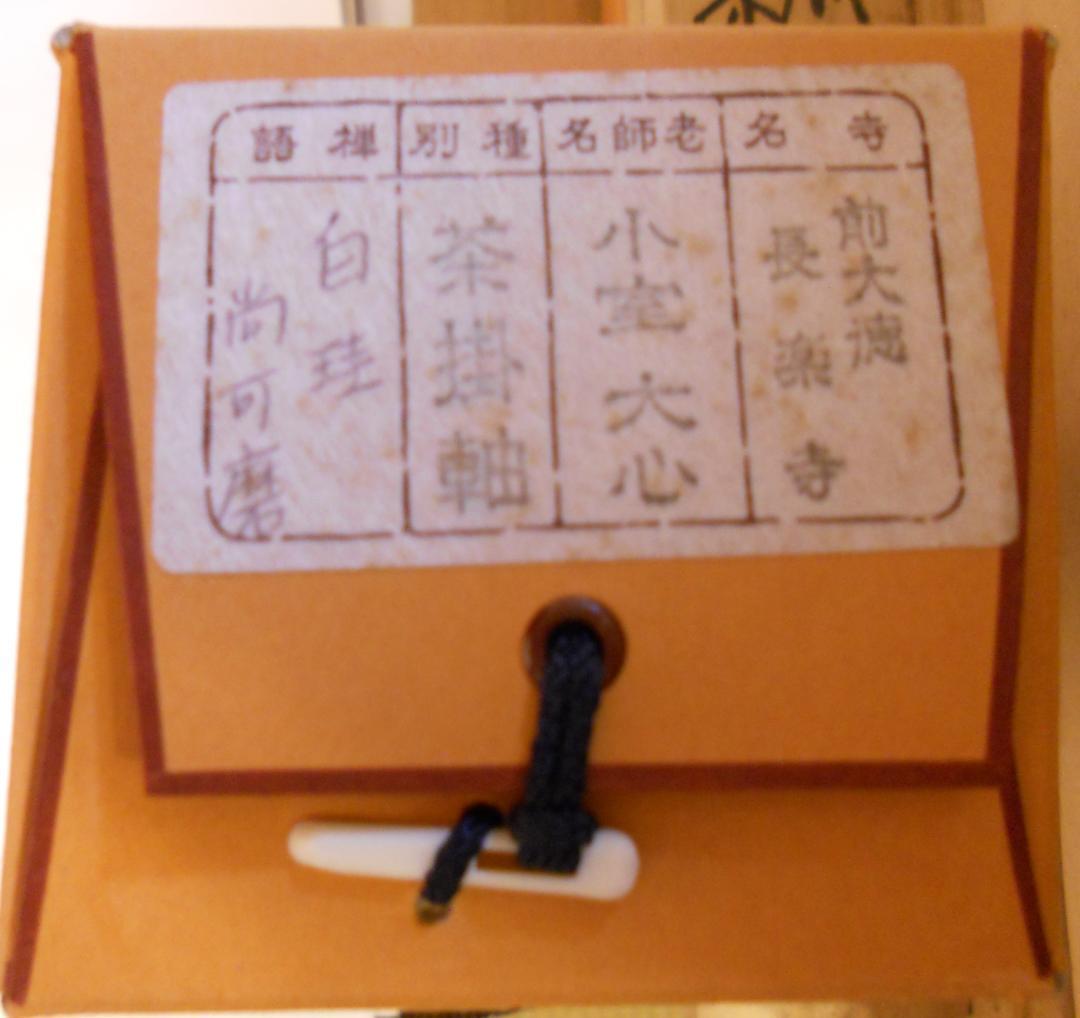 寺名
前大徳
長楽寺
老師名
小室大心
種別
茶掛軸
禅語
白珪
尚可磨